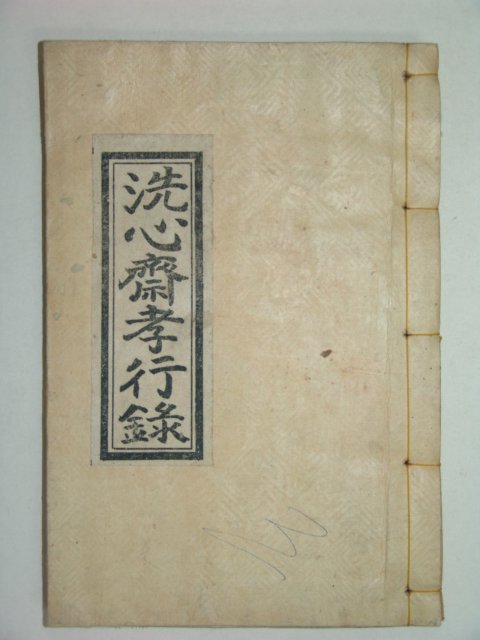 洗心齋孝行錄